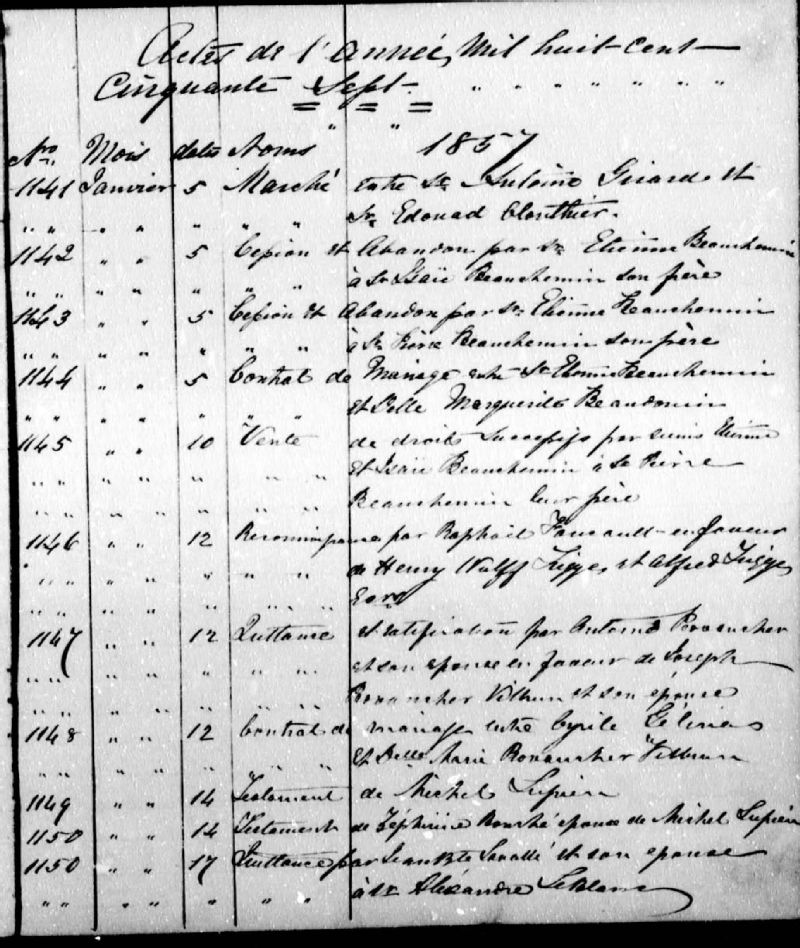 Actes de l'année, Mil huit cent
Cinquante = Sept = " " " " " "
" "
Nro Mois dates Noms 1857
1141 Janvier 5 Marché entre Sr Antoine Girard et
" " " " " " Sr Edouad Clouthier.
1142 " " 5 Cession et Abandon par Sr Etienne Beauchemin
" " " " " " " à Sr Isaïe Beauchemin son frère
1143 " " 5 Cession et Abandon par Sr Etienne Beauchemin
" " " " " " " à Sr Pierre Beauchemin son frère
1144 " " 5 Contrat de Mariage entre Sr Etienne Beauchemin
" " " " " " " et Delle Marguerite Beaudouin
1145 " " 10 Vente de droits Successifs par Etienne
" " " " " " " et Isaïe Beauchemin à Sr Pierre
" " " " " " " Beauchemin leur frère
1146 " " 12 par Raphaël en faveur
" " " " " " " de Henry Wulff Trigge, et Alfred Trigge,
" " " " " " "
1147 " " 12 Quittance et ratification par Antoine
" " " " " " " et son epouse en faveur de Joseph
" " " " " " " Villeun et son épouse
1148 " " 12 Contrat de mariage entre Cyrile Gélinas
" " " " " " et Delle Marie
1149 " " 14 Testament de Michel Lupien
1150 " " 14 Testament de Zéphirine epouse de Michel Lupien
1150 " " 17 Quittance par Jean Bte Lavallé et son epouse
" " " " " " à Sr Aléxandre Leblanc